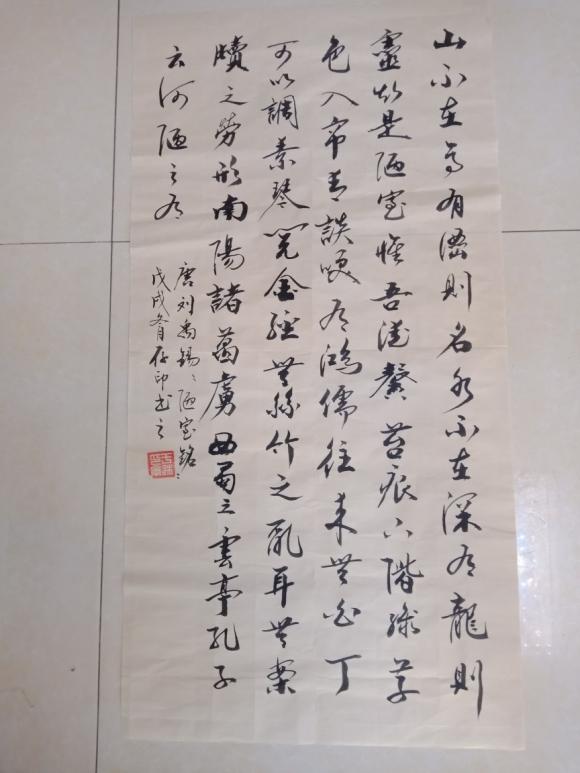 山不在高有僊則名水不在深有龍則
靈斯是陋室惟吾德馨苔痕上階綠草
色入帘青談笑有鴻儒往来無白丁
可以調素琴閱金經無絲竹之亂耳無案
牘之勞形南陽諸葛廬西蜀雲亭孔子
云何陋之有
唐刘禹錫陋室銘
戊戌冬月存印书之